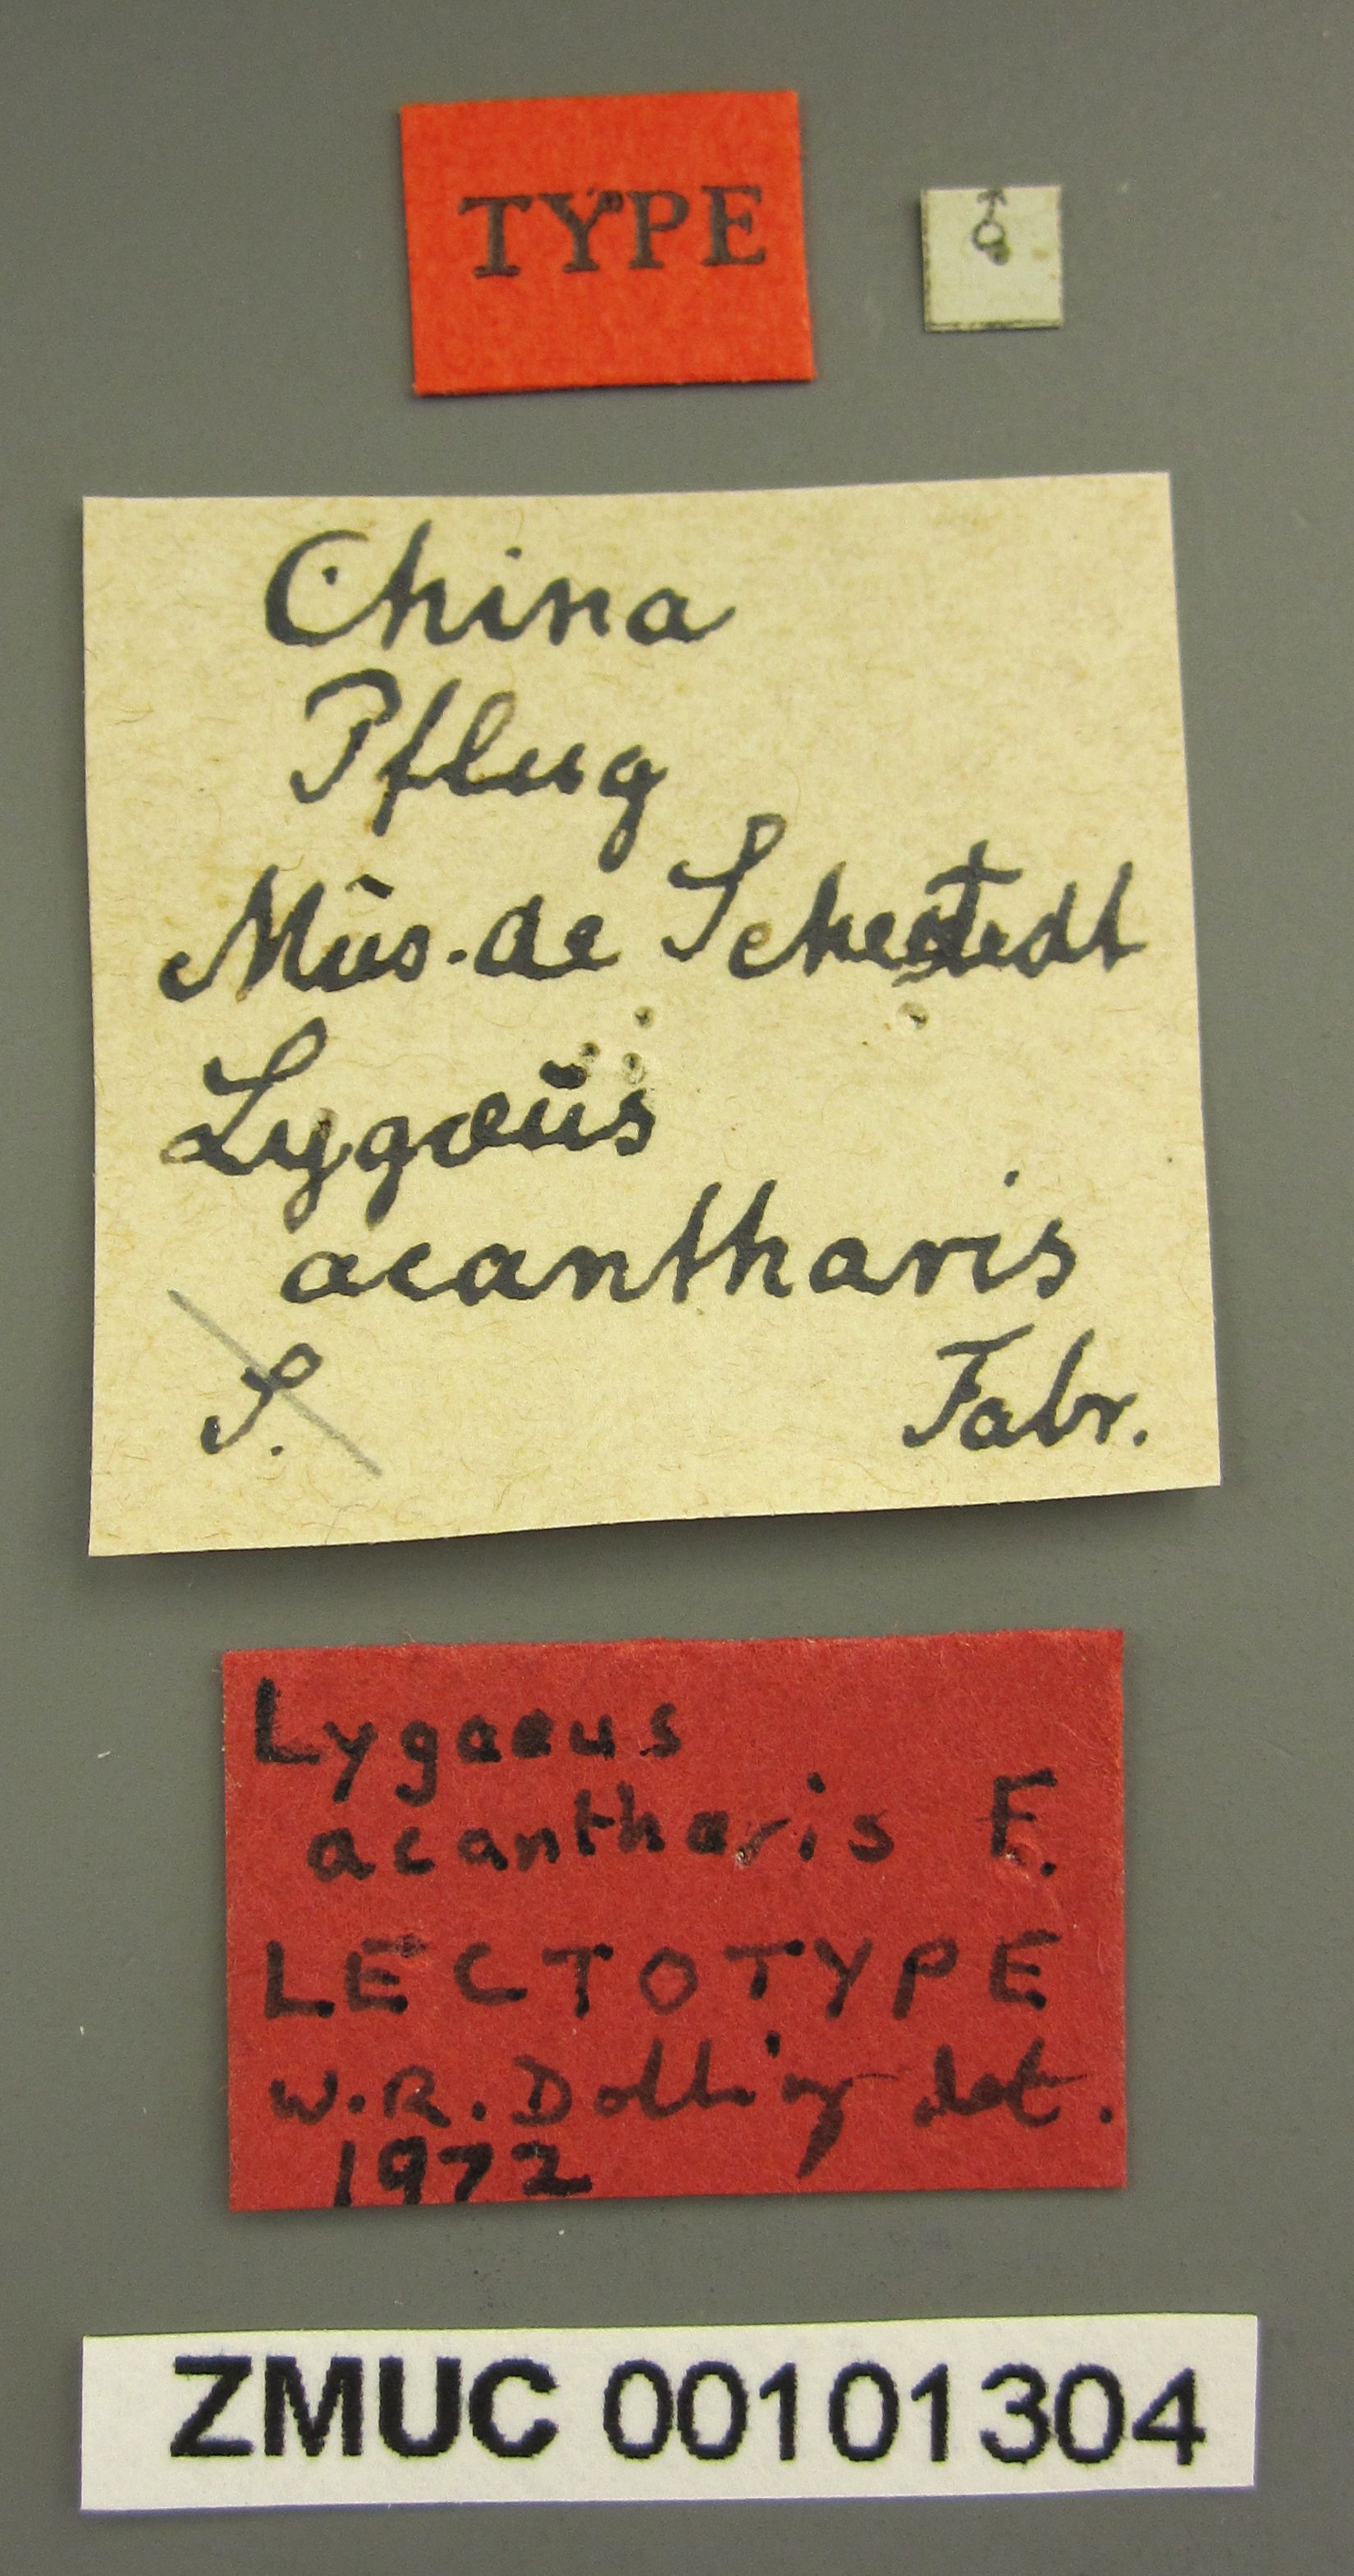 TYPE
♂
China
Pflug
Mus. de Sehestedt
Lygæus
acantharis
S. Fabr.
Lygaeus
acantharis F.
LECTOTYPE
W.R. Dolling det.
1972
ZMUC 00101304